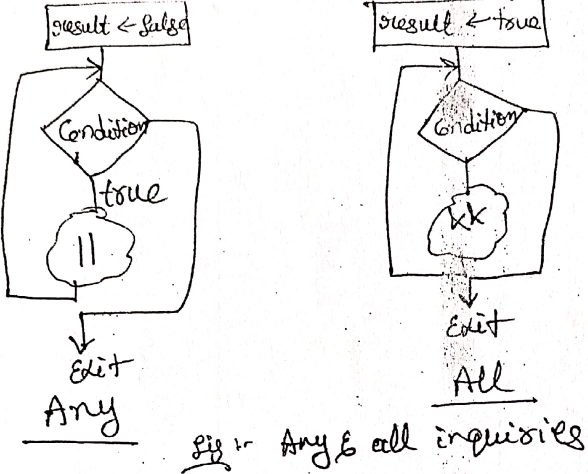 result ← false
Condition
true
||
Exit
Any
result ← true
Condition
&&
Exit
All
Fig :- Any & all inquiries